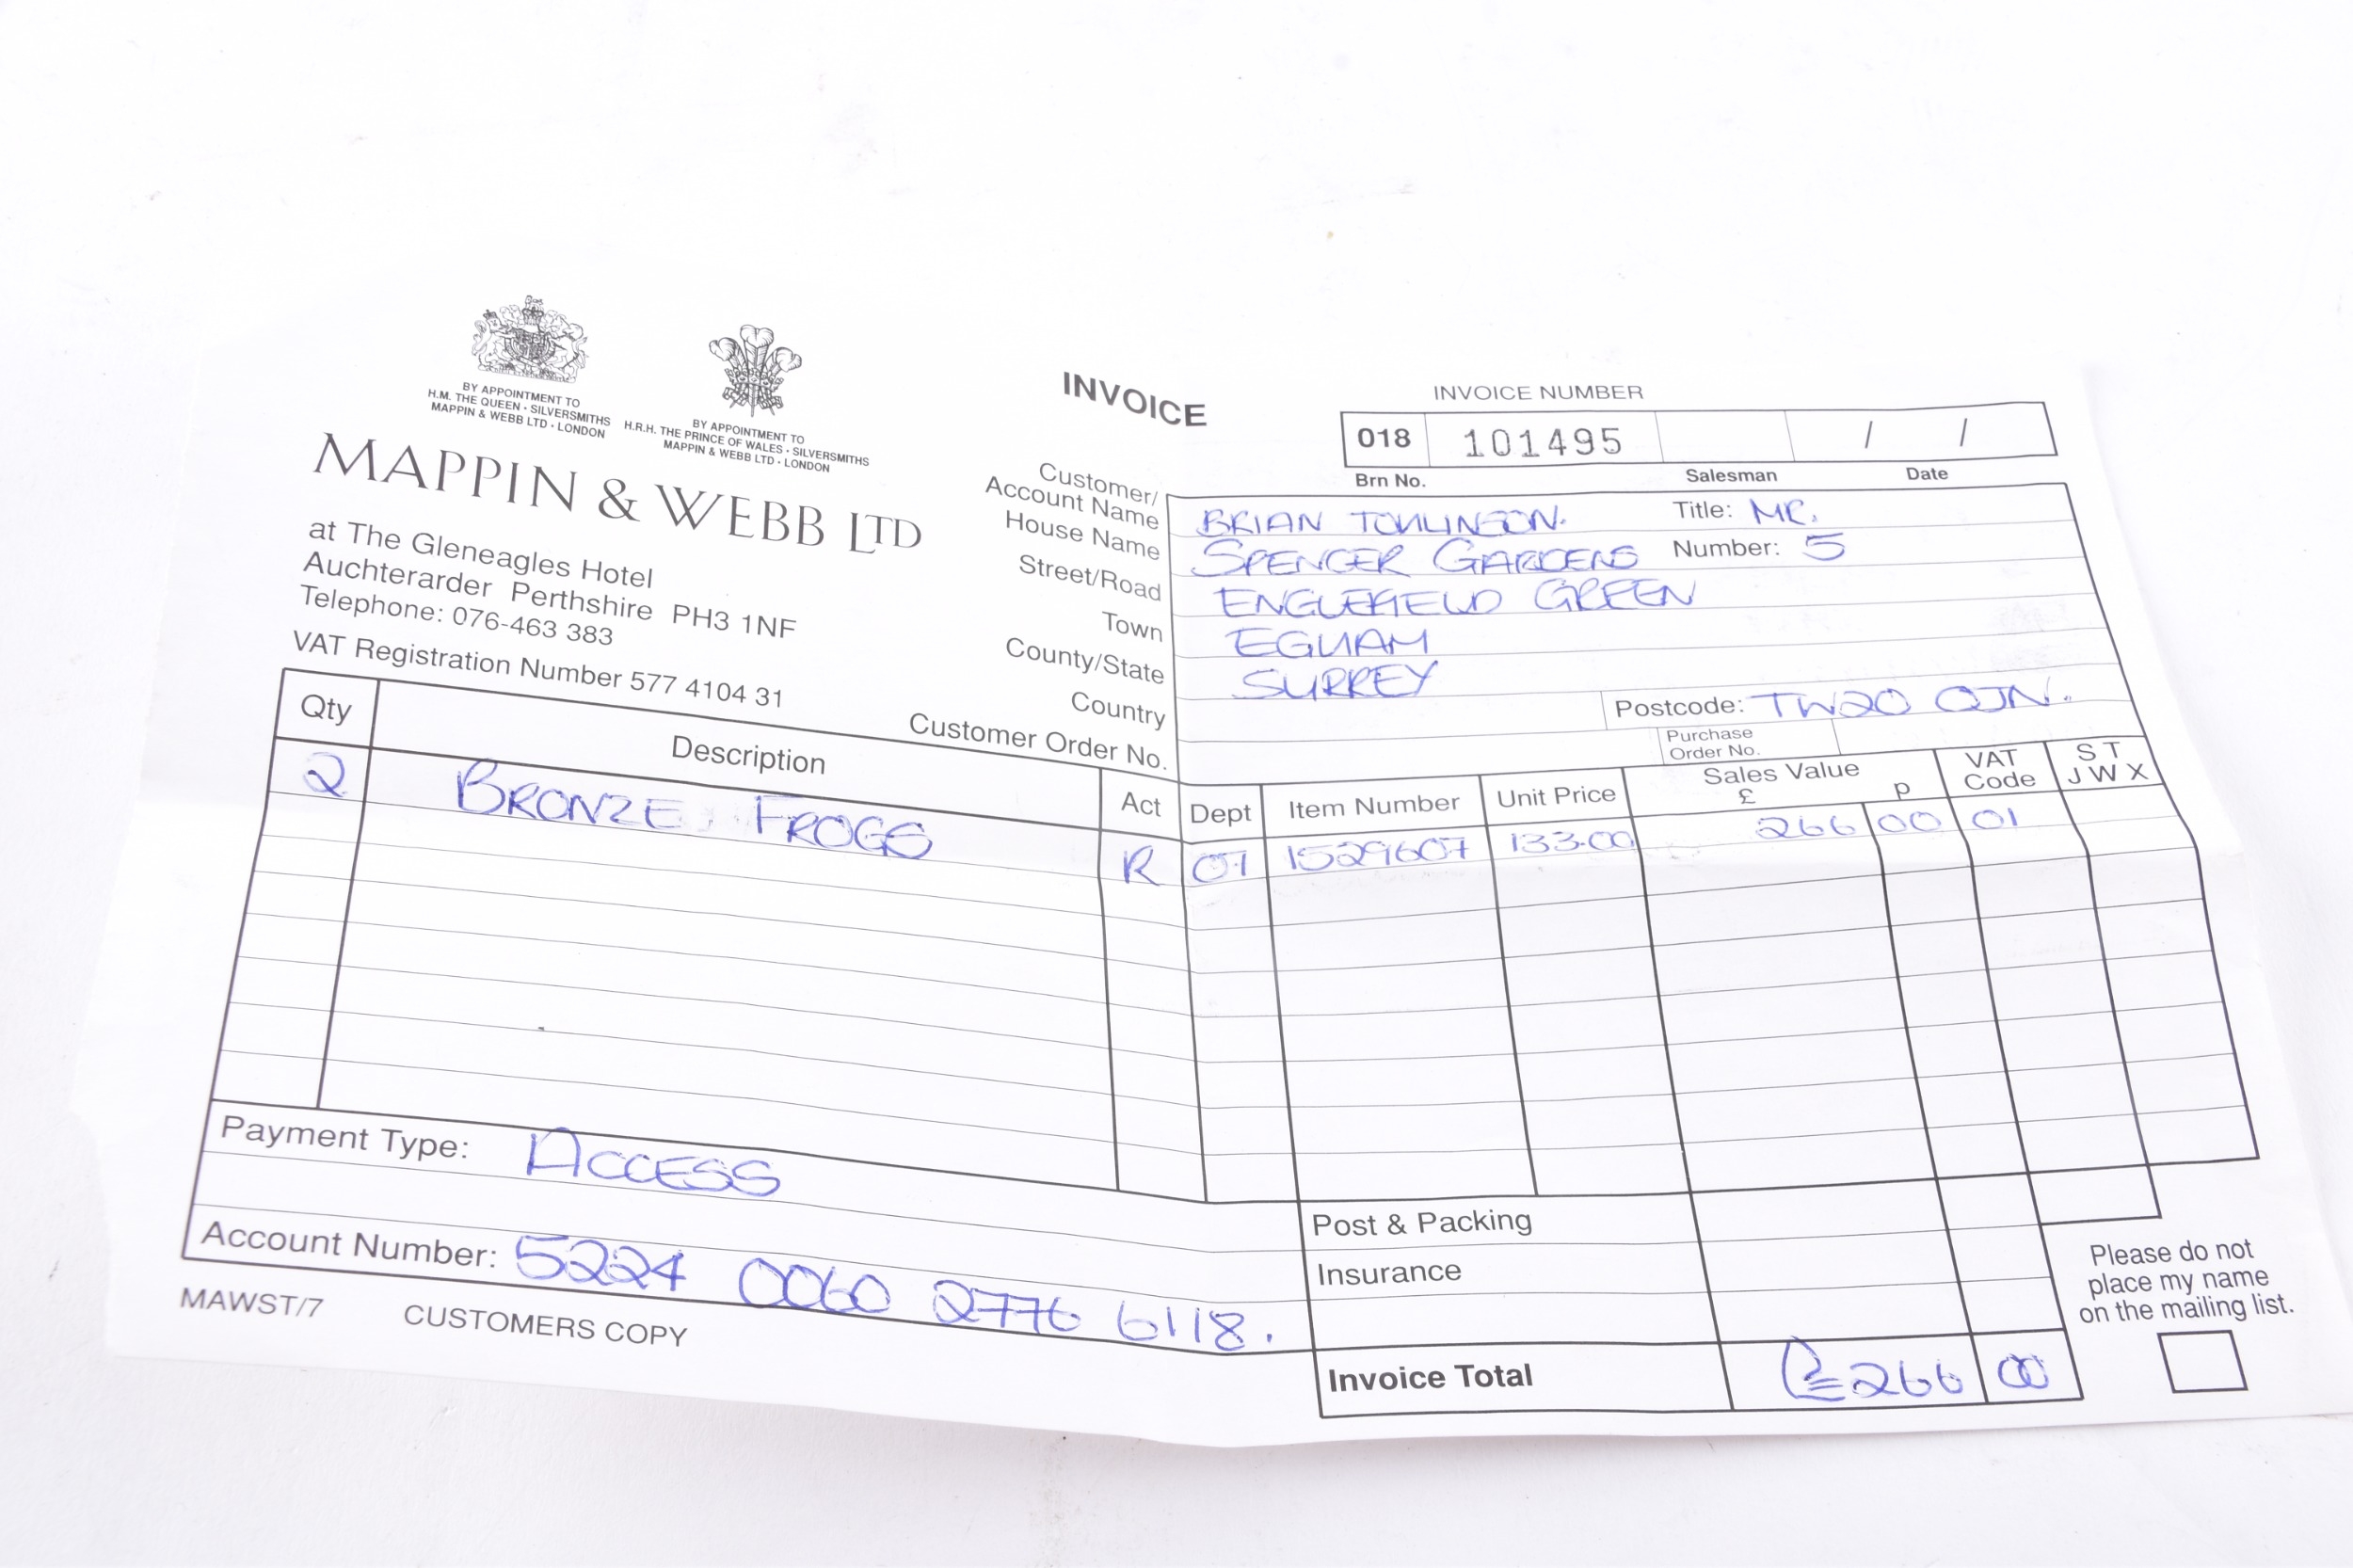 BY APPOINTMENT TO
H.M. THE QUEEN · SILVERSMITHS
MAPPIN & WEBB LTD · LONDON
BY APPOINTMENT TO
H.R.H. THE PRINCE OF WALES · SILVERSMITHS
MAPPIN & WEBB LTD · LONDON
MAPPIN & WEBB LTD
at The Gleneagles Hotel
Auchterarder Perthshire PH3 1NF
Telephone: 076-463 383
VAT Registration Number 577 4104 31
INVOICE
INVOICE NUMBER
018 101495 / /
Brn No. Salesman Date
Customer/
Account Name BRIAN TOMLINSON. Title: MR.
House Name SPENCER GARDENS Number: 5
Street/Road ENGLEFIELD GREEN
Town EGHAM
County/State SURREY
Country Postcode: TW20 0JN.
Customer Order No. Purchase
Order No.
Qty Description Act Dept Item Number Unit Price Sales Value £ p VAT Code S T J W X
2 BRONZE FROGS R 07 1529607 133.00 266 00 01
Payment Type: ACCESS
Account Number: 5224 0060 2776 6118.
MAWST/7 CUSTOMERS COPY
Post & Packing
Insurance
Invoice Total £266 00
Please do not
place my name
on the mailing list.